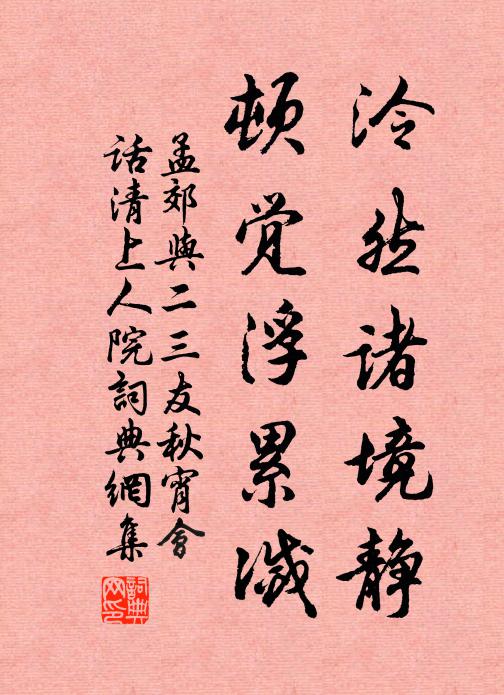 泠然诸境静
顿觉浮累减
孟郊與二三友秋宵會
话清上人院詞典網集
詞典
网印